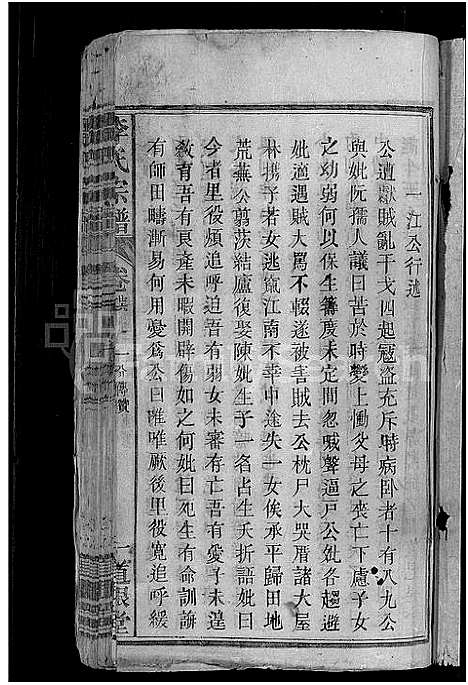 一江公行述
公遭獻賊亂干戈四起寇盜充斥時病臥者十有八九公
與妣阮孺人議曰苦於時變上慟父母之喪亡下慮子女
之幼弱何以保生籌度未定間忽喊聲逼戶公妣各趨避
妣適遇賊大罵不輟遂被害賊去公枕尸大哭厝諸大屋
林携子若女逃竄江南不幸中途失一女俟承平歸田地
荒蕪公剪茨結廬復娶陳妣生子一名占生夭折語妣曰
今者里役頻追呼迫吾有弱女未審存亡吾有愛子未遑
敎育吾有良產未暇開辟傷如之何妣曰死生有命訓誨
有師田疇漸易何用憂爲公曰唯唯厥後里役寬追呼緩
李氏宗譜
卷
傳贊
一
道根堂